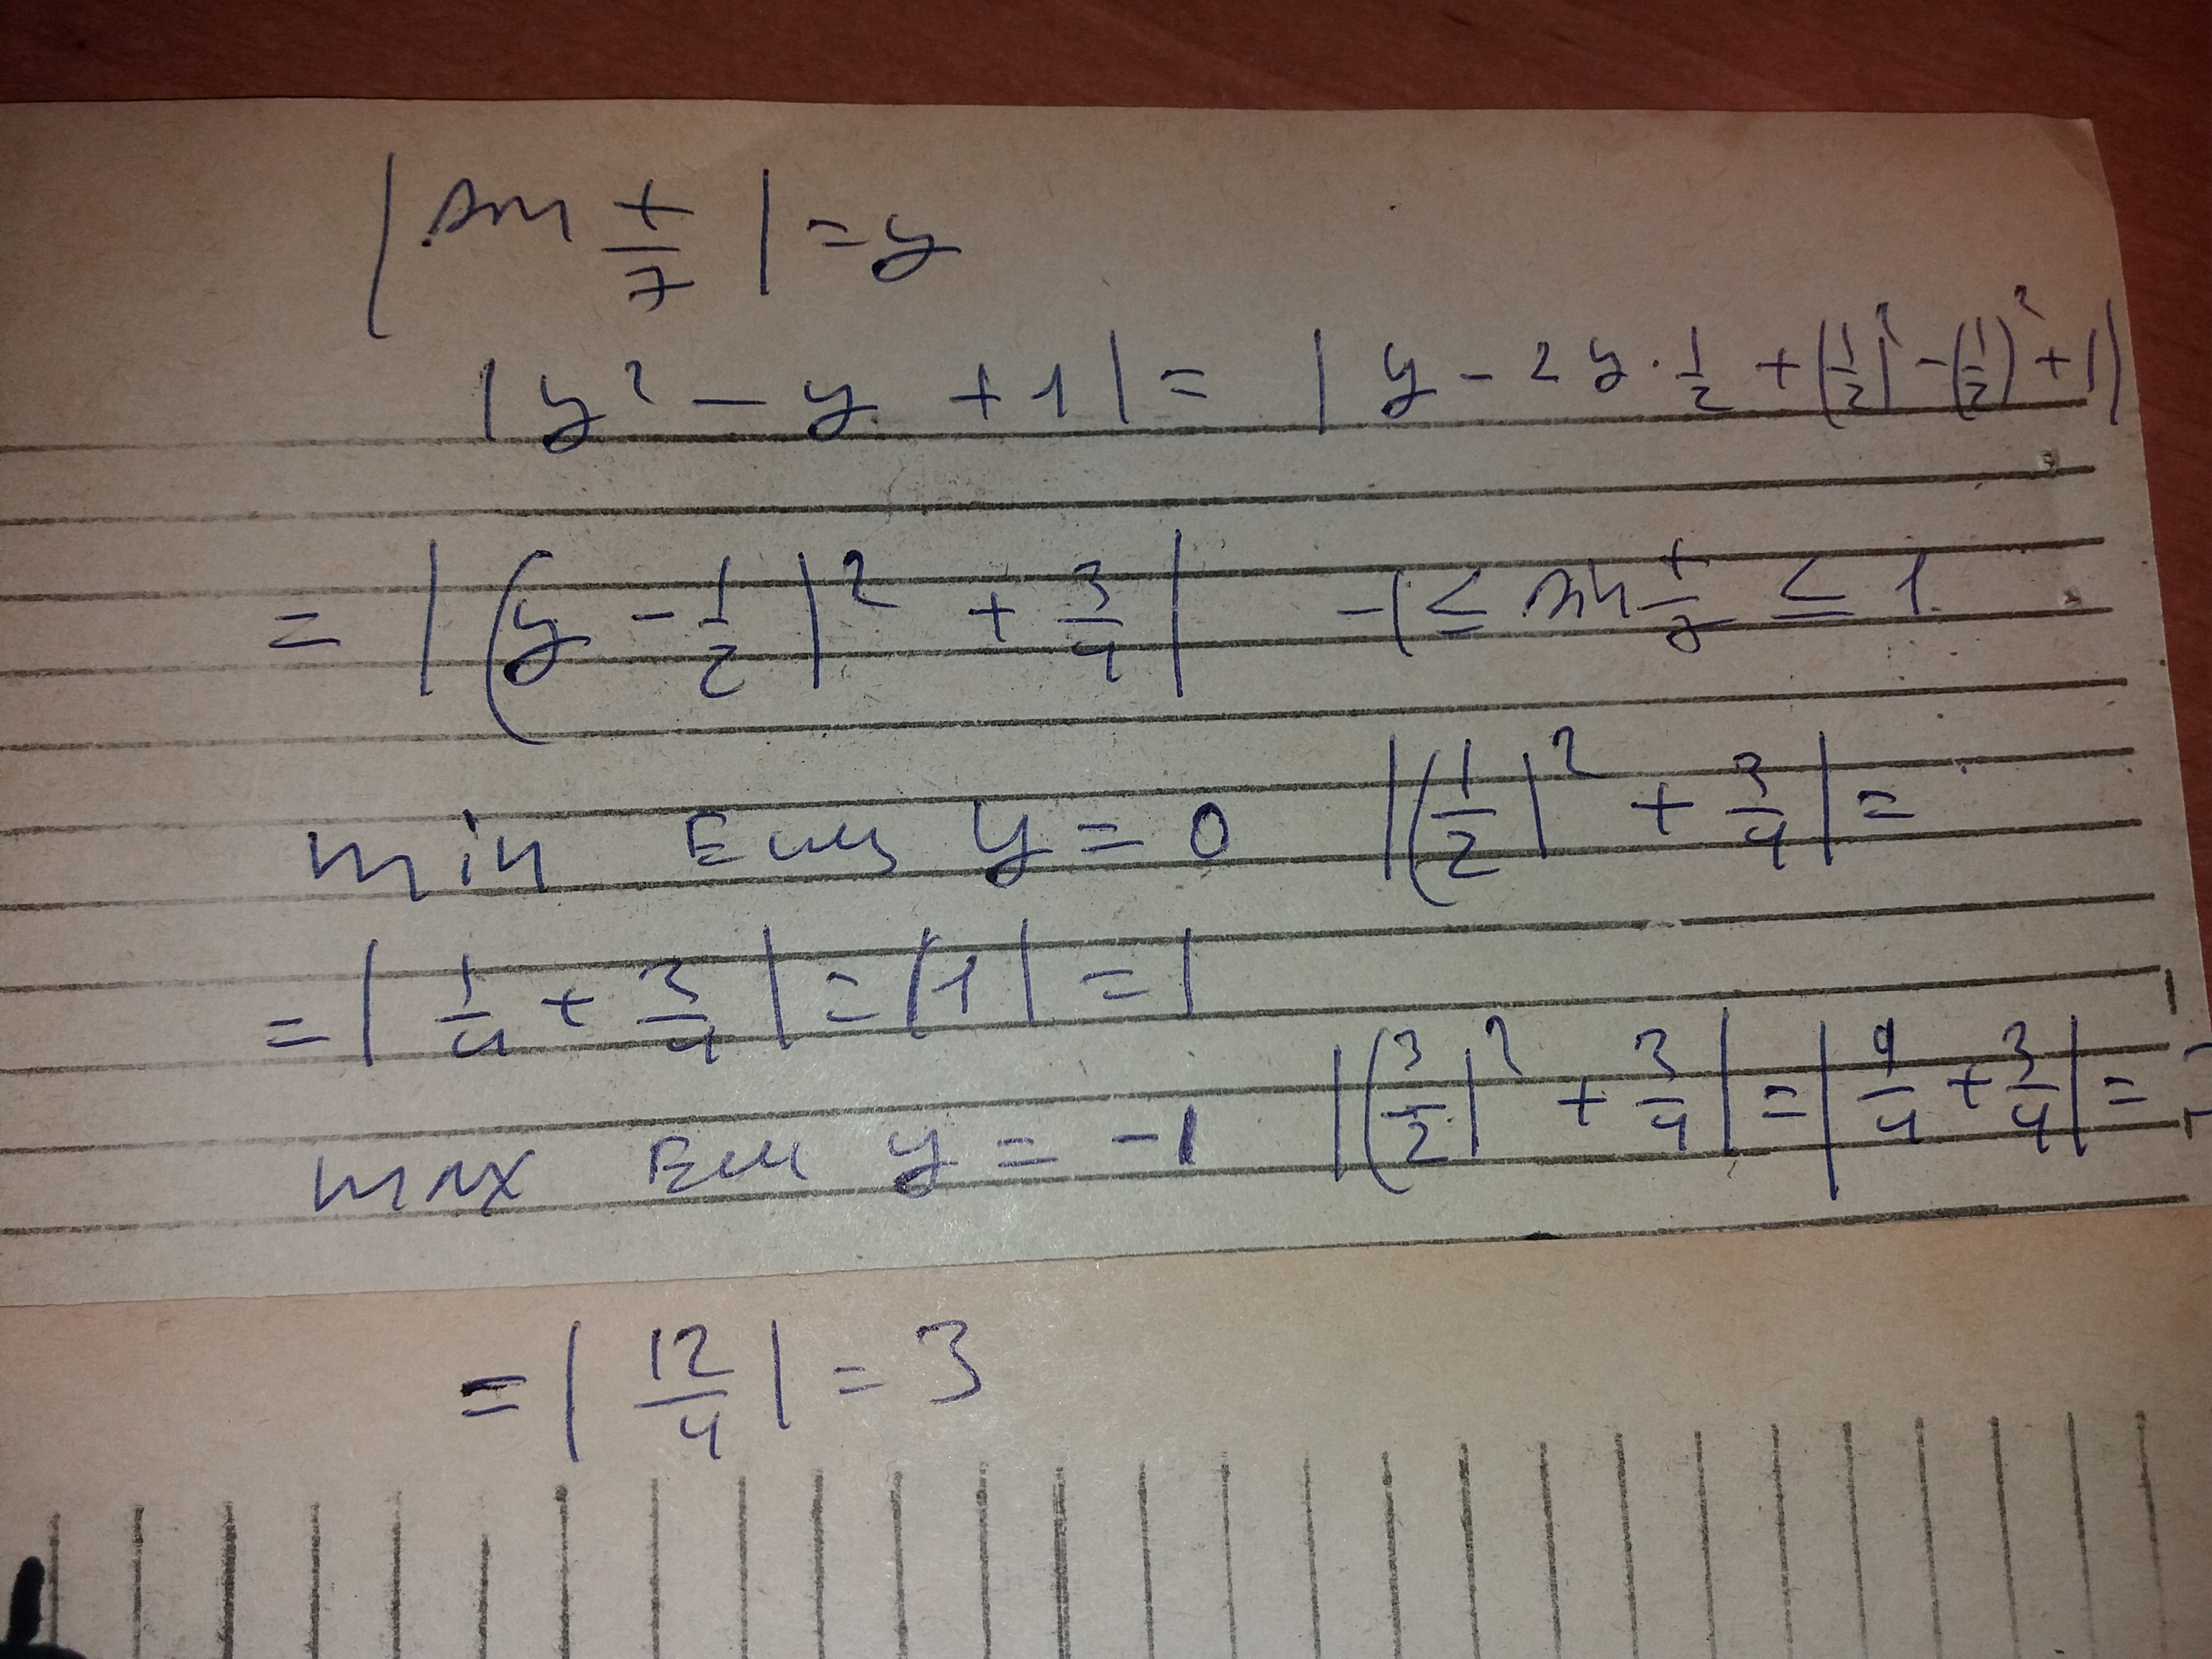 | sin x/7 | = y
| y² - y + 1 | = | y - 2y · 1/2 + (1/2)² - (1/2)² + 1 |
= | (y - 1/2)² + 3/4 | -1 ≤ sin x/7 ≤ 1
min Если y = 0 | (1/2)² + 3/4 | =
= | 1/4 + 3/4 | = | 1 | = 1
max Если y = -1 | (3/2)² + 3/4 | = | 9/4 + 3/4 | =
= | 12/4 | = 3